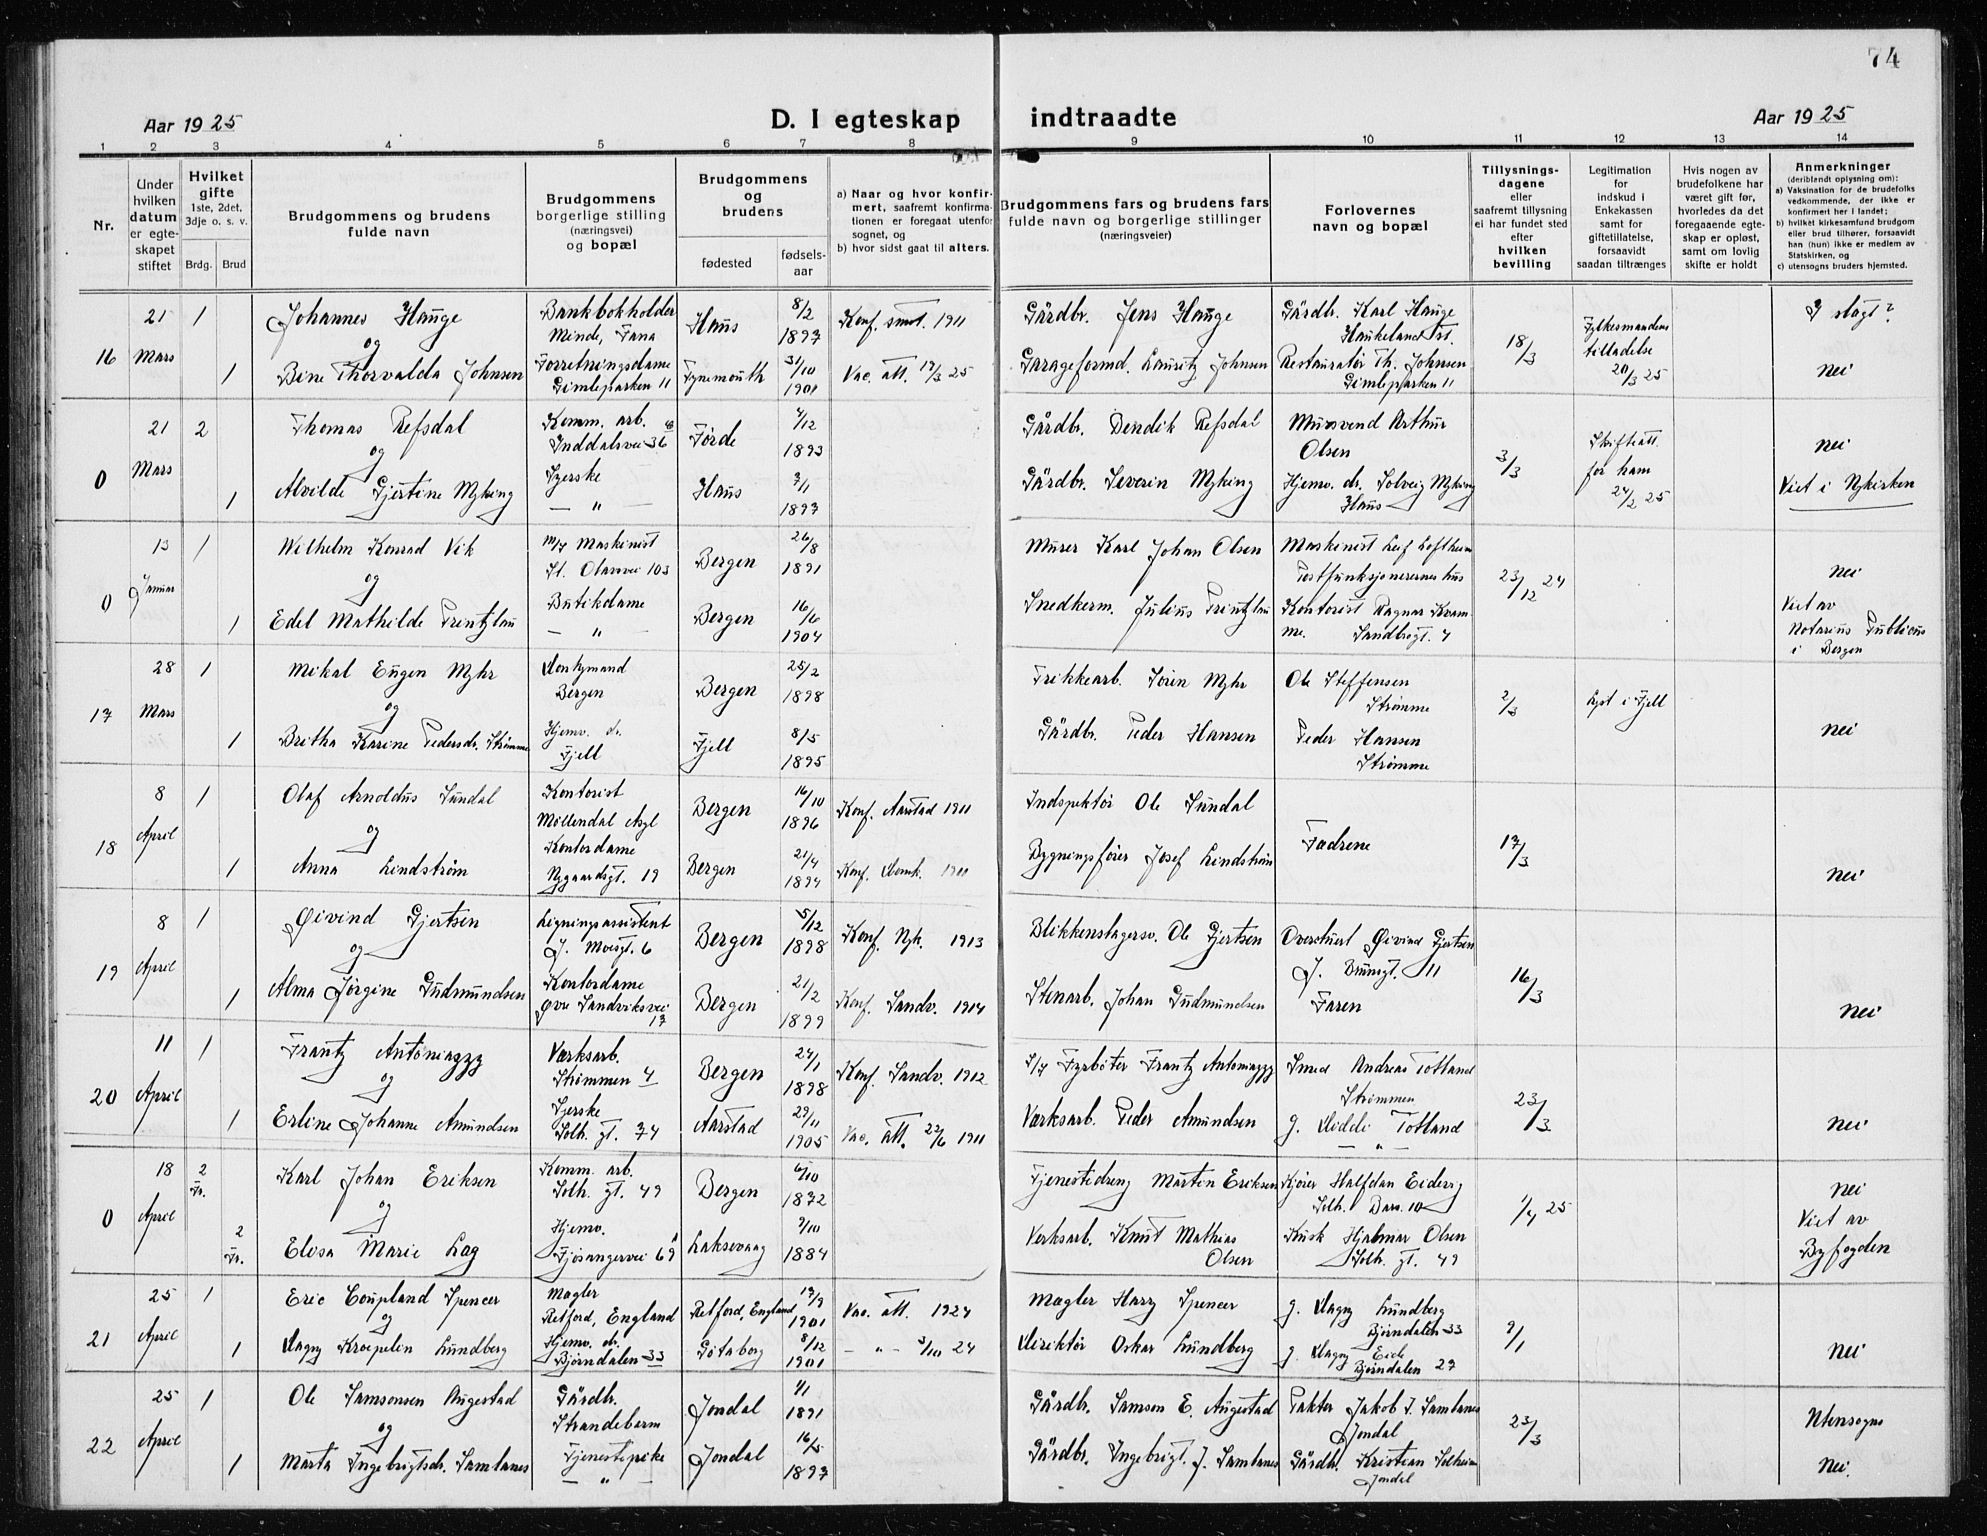 74
Aar 1925
D. I egteskap indtraadte
Aar 1925
1 2 3 4 5 6 7 8 9 10 11 12 13 14
Nr.
Under hvilken datum er egteskapet stiftet
Hvilket gifte
1ste, 2det, 3dje o. s. v.
Brdg. Brud
Brudgommens og brudens fulde navn
Brudgommens borgerlige stilling (næringsvei) og bopæl
Brudgommens og brudens
fødested
fødsels-aar
a) Naar og hvor konfirmert, saafremt konfirmationen er foregaat utenfor sognet, og
b) hvor sidst gaat til alters.
Brudgommens fars og brudens fars fulde navn og borgerlige stillinger (næringsveier)
Forlovernes navn og bopæl
Tillysningsdagene eller saafremt tillysning ei har fundet sted efter hvilken bevilling
Legitimation for indskud i Enkekassen samt for giftetillatelse, forsaavidt saadan tiltrænges
Hvis nogen av brudefolkene har været gift før, hvorledes da det foregaaende egteskap er opløst, samt om lovlig skifte er holdt
Anmerkninger
(deriblandt oplysning om):
a) Vaksination for de brudefolks vedkommende, der ikke er konfirmert her i landet;
b) hvilket kirkesamfund brudgom eller brud tilhører, forsaavidt han (hun) ikke er medlem av Statskirken, og
c) utensogns bruders hjemsted.
16 21 Mars 1 Johannes Hauge Bankbokholder Minde, Fana Haus 8/2 1897 Konf. smst. 1911 Gårdbr. Jens Hauge Gårdbr. Karl Hauge Haukeland st. 18/3 Fylkesmandens tilladelse 20/3 25
og
1 Bine Thorvalda Johnsen Forretningsdame Gimleparken 11 Tynemouth 31/10 1901 Vac. att. 19/3 25 Garageformd. Lauritz Johnsen Restauratør Th. Johnsen Gimleparken 11 nei
0 21 Mars 2 Thomas Refsdal Komm. arb. Inddalsvei 36 Førde 4/12 1893 Gårdbr. Bendik Refsdal Mursvend Arthur Olsen 3/3 Skifteatt. for ham 24/2 25 nei
og
1 Alvilde Gjertine Myking Syerske — " — Haus 3/1 1897 Gårdbr. Severin Myking Hjemv. dr. Solveig Myking Haus Viet i Nykirken
0 13 Januar 1 Wilhelm Konrad Vik m/f Maskinist St. Olavsvei 103 Bergen 26/8 1891 Murer Karl Johan Olsen Maskinist Leif Loftheim Postfunksjonærernes hus 23/12 24 nei
og
1 Edel Mathilde Printzlau Butikdame — " — Bergen 16/6 1904 Snedkerm. Julius Printzlau Kontorist Ragnar Kvamme. Sandbrogt. 4 Viet av Notarius Publicus i Bergen
17 28 Mars 1 Mikal Eugen Myhr Donkymand Bergen Bergen 25/2 1898 Frikkearb. Søren Myhr Ole Steffensen Strømme 2/3 Lyst i Fjell
og
1 Britha Karine Pedersdr. Strømme Hjemv. dr. Fjell Fjell 8/5 1895 Gårdbr. Peder Hansen Peder Hansen Strømme nei
18 8 April 1 Olaf Arnoldus Sundal Kontorist Møllendal Asyl Bergen 16/10 1896 Konf. Aarstad 1911 Indspektør Ole Sundal Fædrene 17/3
og
1 Anna Lindstrøm Kontordame Nygaardsgt. 19 Bergen 21/4 1894 Konf. Domk. 1911 Bygningsfører Josef Lindstrøm nei
19 8 April 1 Øivind Gjertsen Ligningsassistent J. Moesgt. 6 Bergen 5/12 1898 Konf. Nyk. 1913 Blikkenslagersv. Ole Gjertsen Overstuert Øivind Gjertsen J. Brunsgt. 11 16/3
og
1 Alma Jørgine Gudmundsen Kontordame Øvre Sandviksvei 17 Bergen 21/2 1899 Konf. Sandv. 1914 Stenarb. Johan Gudmundsen Faren nei
20 11 April 1 Frantz Antoniazzy Værksarb. Strømmen 4 Bergen 24/1 1898 Konf. Sandv. 1912 S/f Fyrbøter Frantz Antoniazzy Smed Andreas Totland Strømmen 23/3
og
1 Erline Johanne Amundsen Syerske Solh. gt. 74 Aarstad 29/11 1905 Vac. att. 22/6 1911 Værksarb. Peder Amundsen g. Diddi Totland — " — nei
0 18 April 2 Fr. Karl Johan Eriksen Komm. arb. Solh. gt. 49 Bergen 6/10 1872 Tjenestedreng Martin Eriksen Kjører Halfdan Eidevig Solh. Bars. 10 1/4 25 nei
og
2 Fr. Elosa Marie Lag Hjemv. Fjøsangervei 69 Laksevaag 7/10 1884 Verksarb. Knut Mathias Olsen Kusk Hjalmar Olsen Solh. gt. 49 Viet av Byfogden
21 25 April 1 Eric Coupland Spencer Mægler Retford, England Retford, England 19/9 1901 Vac. att. 1924 Mægler Harry Spencer g. Dagny Lundberg Bjørndalen 33 9/1
og
1 Dagny Kroepelin Lundberg Hjemv. dr. Bjørndalen 33 Gøteborg 8/12 1901 — " — 3/10 24 Direktør Oskar Lundberg g. Dagny Eide Bjørndalen 27 nei
22 25 April 1 Ole Samsonsen Augestad Gårdbr. Strandebarm Jondal 4/1 1891 Gårdbr. Samson E. Augestad Pakter Jakob J. Samlanes Jondal 23/3 Utensogns
og
1 Marta Ingebrigtsdr. Samlanes Tjenestepike — " — Jondal 16/5 1897 Gårdbr. Ingebrigt J. Samlanes Gårdbr. Kristian Solheim Jondal nei.